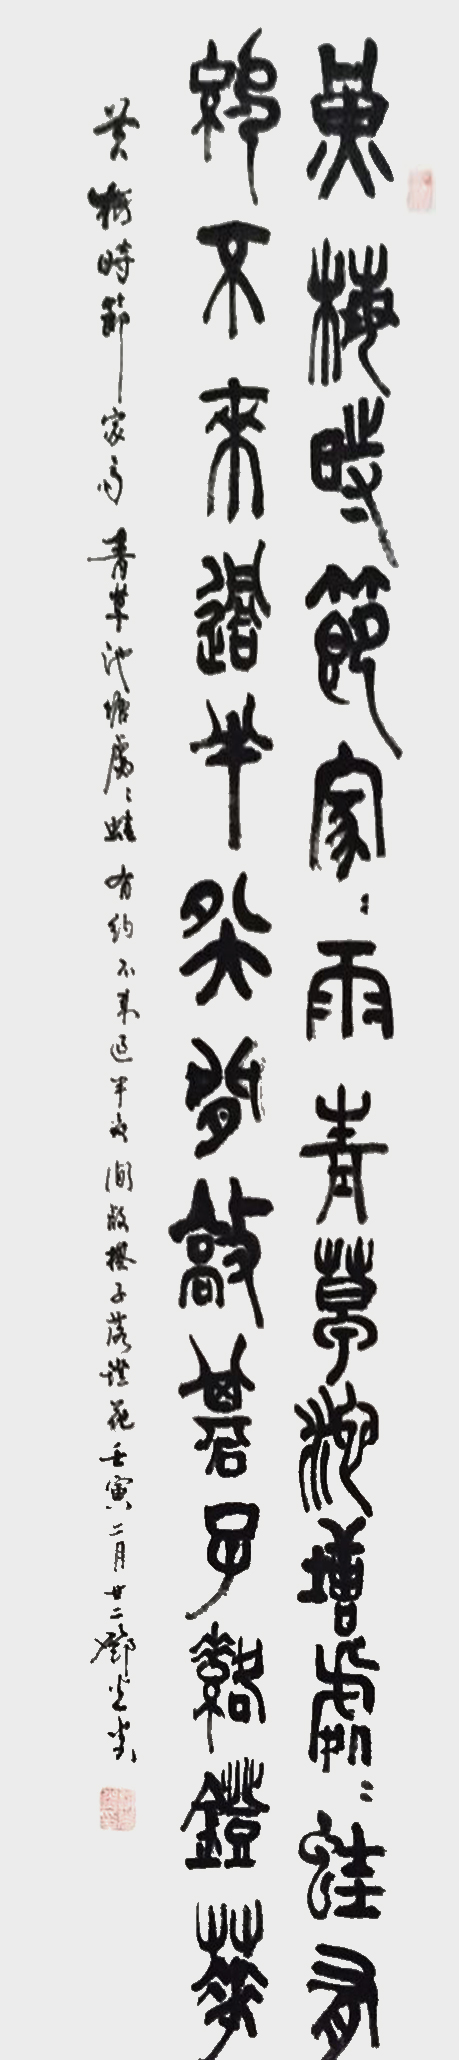 黄梅時節家〻雨青草池塘處〻蛙有
約不來過半夜閒敲碁子落鐙華
黄梅時節家雨青草池塘處〻蛙有約不來過半夜閒敲棋子落燈花壬寅二月廿二鄧